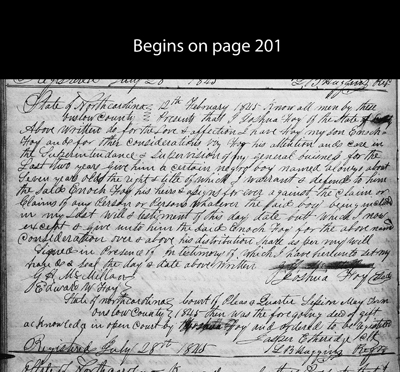 Begins on page 201
Registered July 28th 1845
State of Northcarolina 12th February 1845 Know all men by these
Onslow County Presents that I Joshua Foy of the State &
Above written do for the Love & affection I have for my son Enoch
Foy and for other Considerations viz for his attention and care in
the Superintendance & Supervision of my general business for the
Last two years give him a certain negro boy named about
years old the right & title of which I warrant & defend to him
the said Enoch Foy his heirs & asigns for ever against the claim or
Claims of any Person or Persons whatever the said boy being
in my Last will & testament of this day date but which I now
except & give unto him the said Enoch Foy for the above named
Consideration over & above his distribution share as per my will
Signed in Presents of In testimony of which I have hereunto set my
hand & seal the day & date above written
G. H. McMillan Joshua Foy (seal)
Edward W. Foy
State of Northcarolina Court of Pleas & Quarter Session May Term
Onslow County 1845 then was the foregoing deed of gift
acknowledg in open Court by Joshua Foy and ordered to be registered
Jasper Etheredge Clk
Registered July 28th 1845 L B Huggins Regr